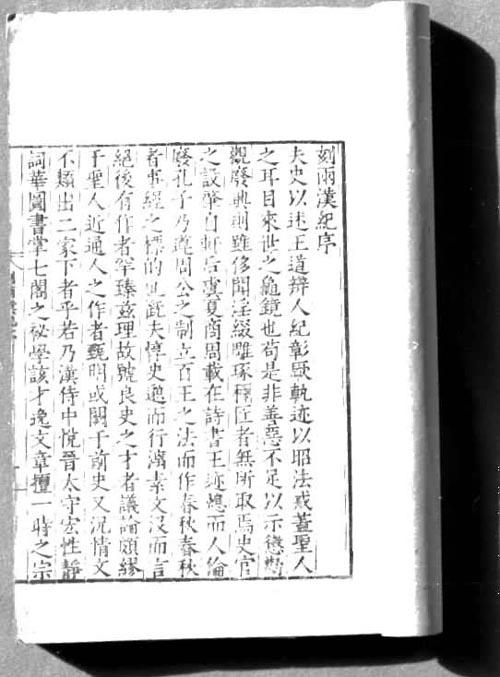 刻兩漢紀序
夫史以述王道辯人紀彰厥軌迹以昭法戒蓋聖人
之耳目來世之龜鏡也苟是非善惡不足以示懲勸
觀廢興則雖侈聞淫綴雕琢稱匠者無所取焉史官
之設肇自軒后虞夏商周載在詩書王迹熄而人倫
廢孔子乃遵周公之制立百王之法而作春秋春秋
者事經之標的也旣夫惇史邈而行漓素文沒而言
絕後有作者罕臻茲理故號良史之才者議論頗繆
于聖人近通人之作者甄明或闕于前史又況情文
不類出二家下者乎若乃漢侍中悅晉太守宏性靜
詞華圖書掌七閣之祕學該才逸文章擅一時之宗